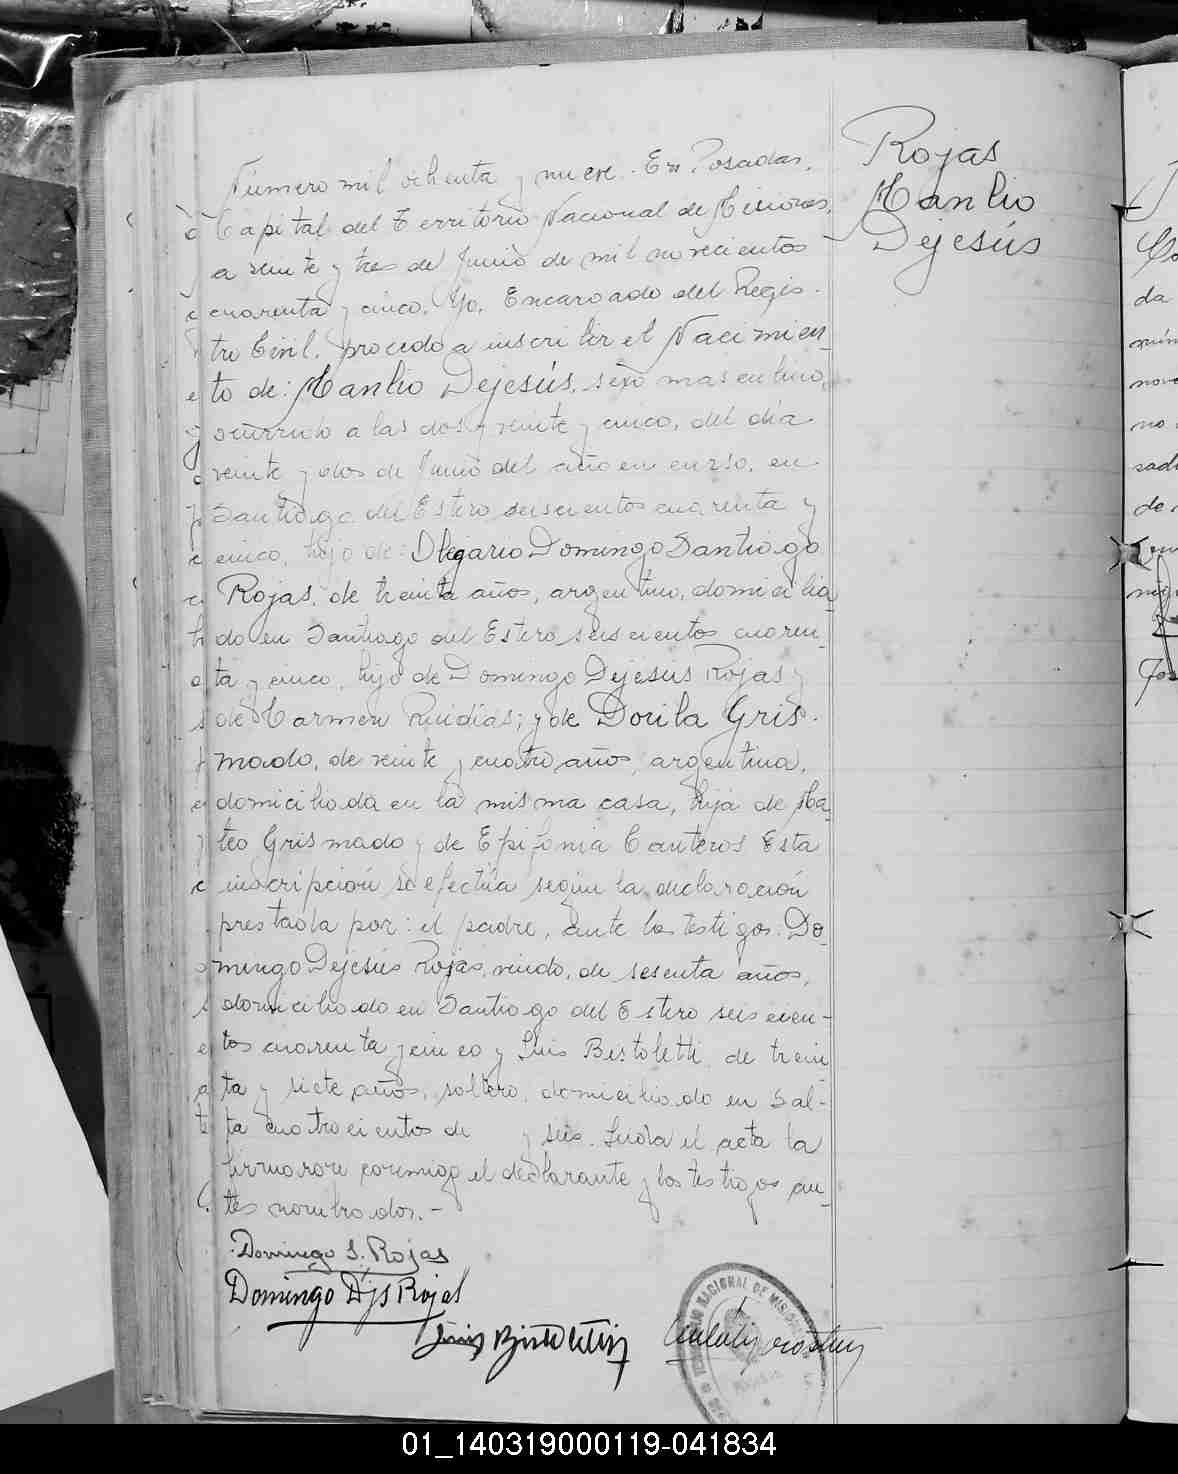 Rojas
Manlio
Dejesús
Número mil ochenta y nueve. En Posadas,
Capital del Territorio Nacional de Misiones,
a veinte y tres de Junio de mil novecientos
cuarenta y cinco. Yo, Encargado del Regis-
tro Civil, procedo a inscribir el Nacimien-
to de: Manlio Dejesús, sexo masculino,
ocurrido a las dos y veinte y cinco, del día
veinte y dos de Junio del año en curso, en
Santiago del Estero seiscientos cuarenta y
cinco, hijo de: Olegario Domingo Santiago
Rojas, de treinta años, argentino, domicilia-
do en Santiago del Estero seiscientos cuaren-
ta y cinco, hijo de Domingo Dejesús Rojas y
de Carmen Ruidias; y de Dorila Gris-
mado, de veinte y cuatro años, argentina,
domiciliada en la misma casa, hija de Ma-
teo Grismado y de Epifonia Canteros. Esta
inscripción se efectúa según la declaración
prestada por: el padre, ante los testigos: Do-
mingo Dejesús Rojas, viudo, de sesenta años,
domiciliado en Santiago del Estero seiscien-
tos cuarenta y cinco y Luis Bistoletti, de trein-
ta y siete años, soltero, domiciliado en Sal-
ta cuatrocientos de y seis. Leída el acta la
firmaron conmigo el declarante y los testigos an-
tes nombrados.-
Domingo S. Rojas
Domingo Djs Rojas
Luis Bistoletti
NACIONAL DE MISIONES
01_140319000119-041834